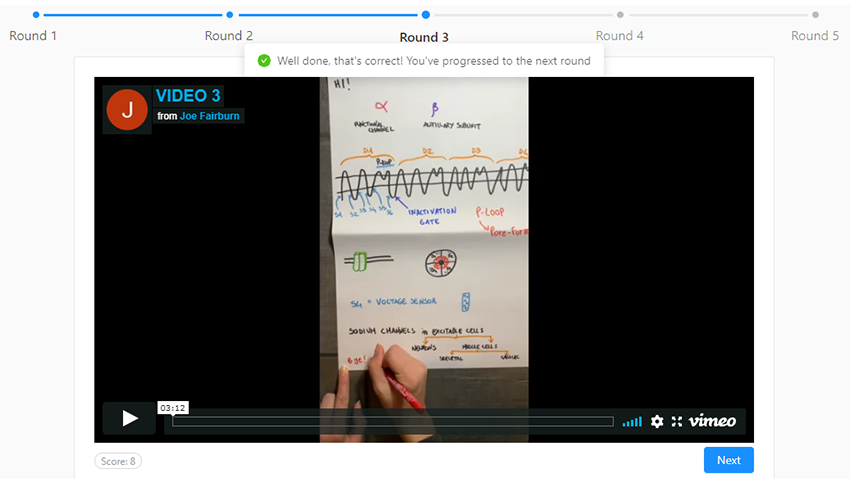 Round 1
Round 2
Round 3
Round 4
Round 5
Well done, that's correct! You've progressed to the next round
J
VIDEO 3
from Joe Fairburn
HI!
α
β
FUNCTIONAL
CHANNEL
AUXILIARY SUBUNIT
D1
D2
D3
D4
P-LOOP
S1
S2
S3
S4
S5
S6
INACTIVATION
GATE
P-LOOP
Pore-Form
S4 = VOLTAGE SENSOR
SODIUM CHANNELS in EXCITABLE CELLS
NEURONS
MUSCLE CELLS
SKELETAL
Bye!
03:12
vimeo
Score: 8
Next